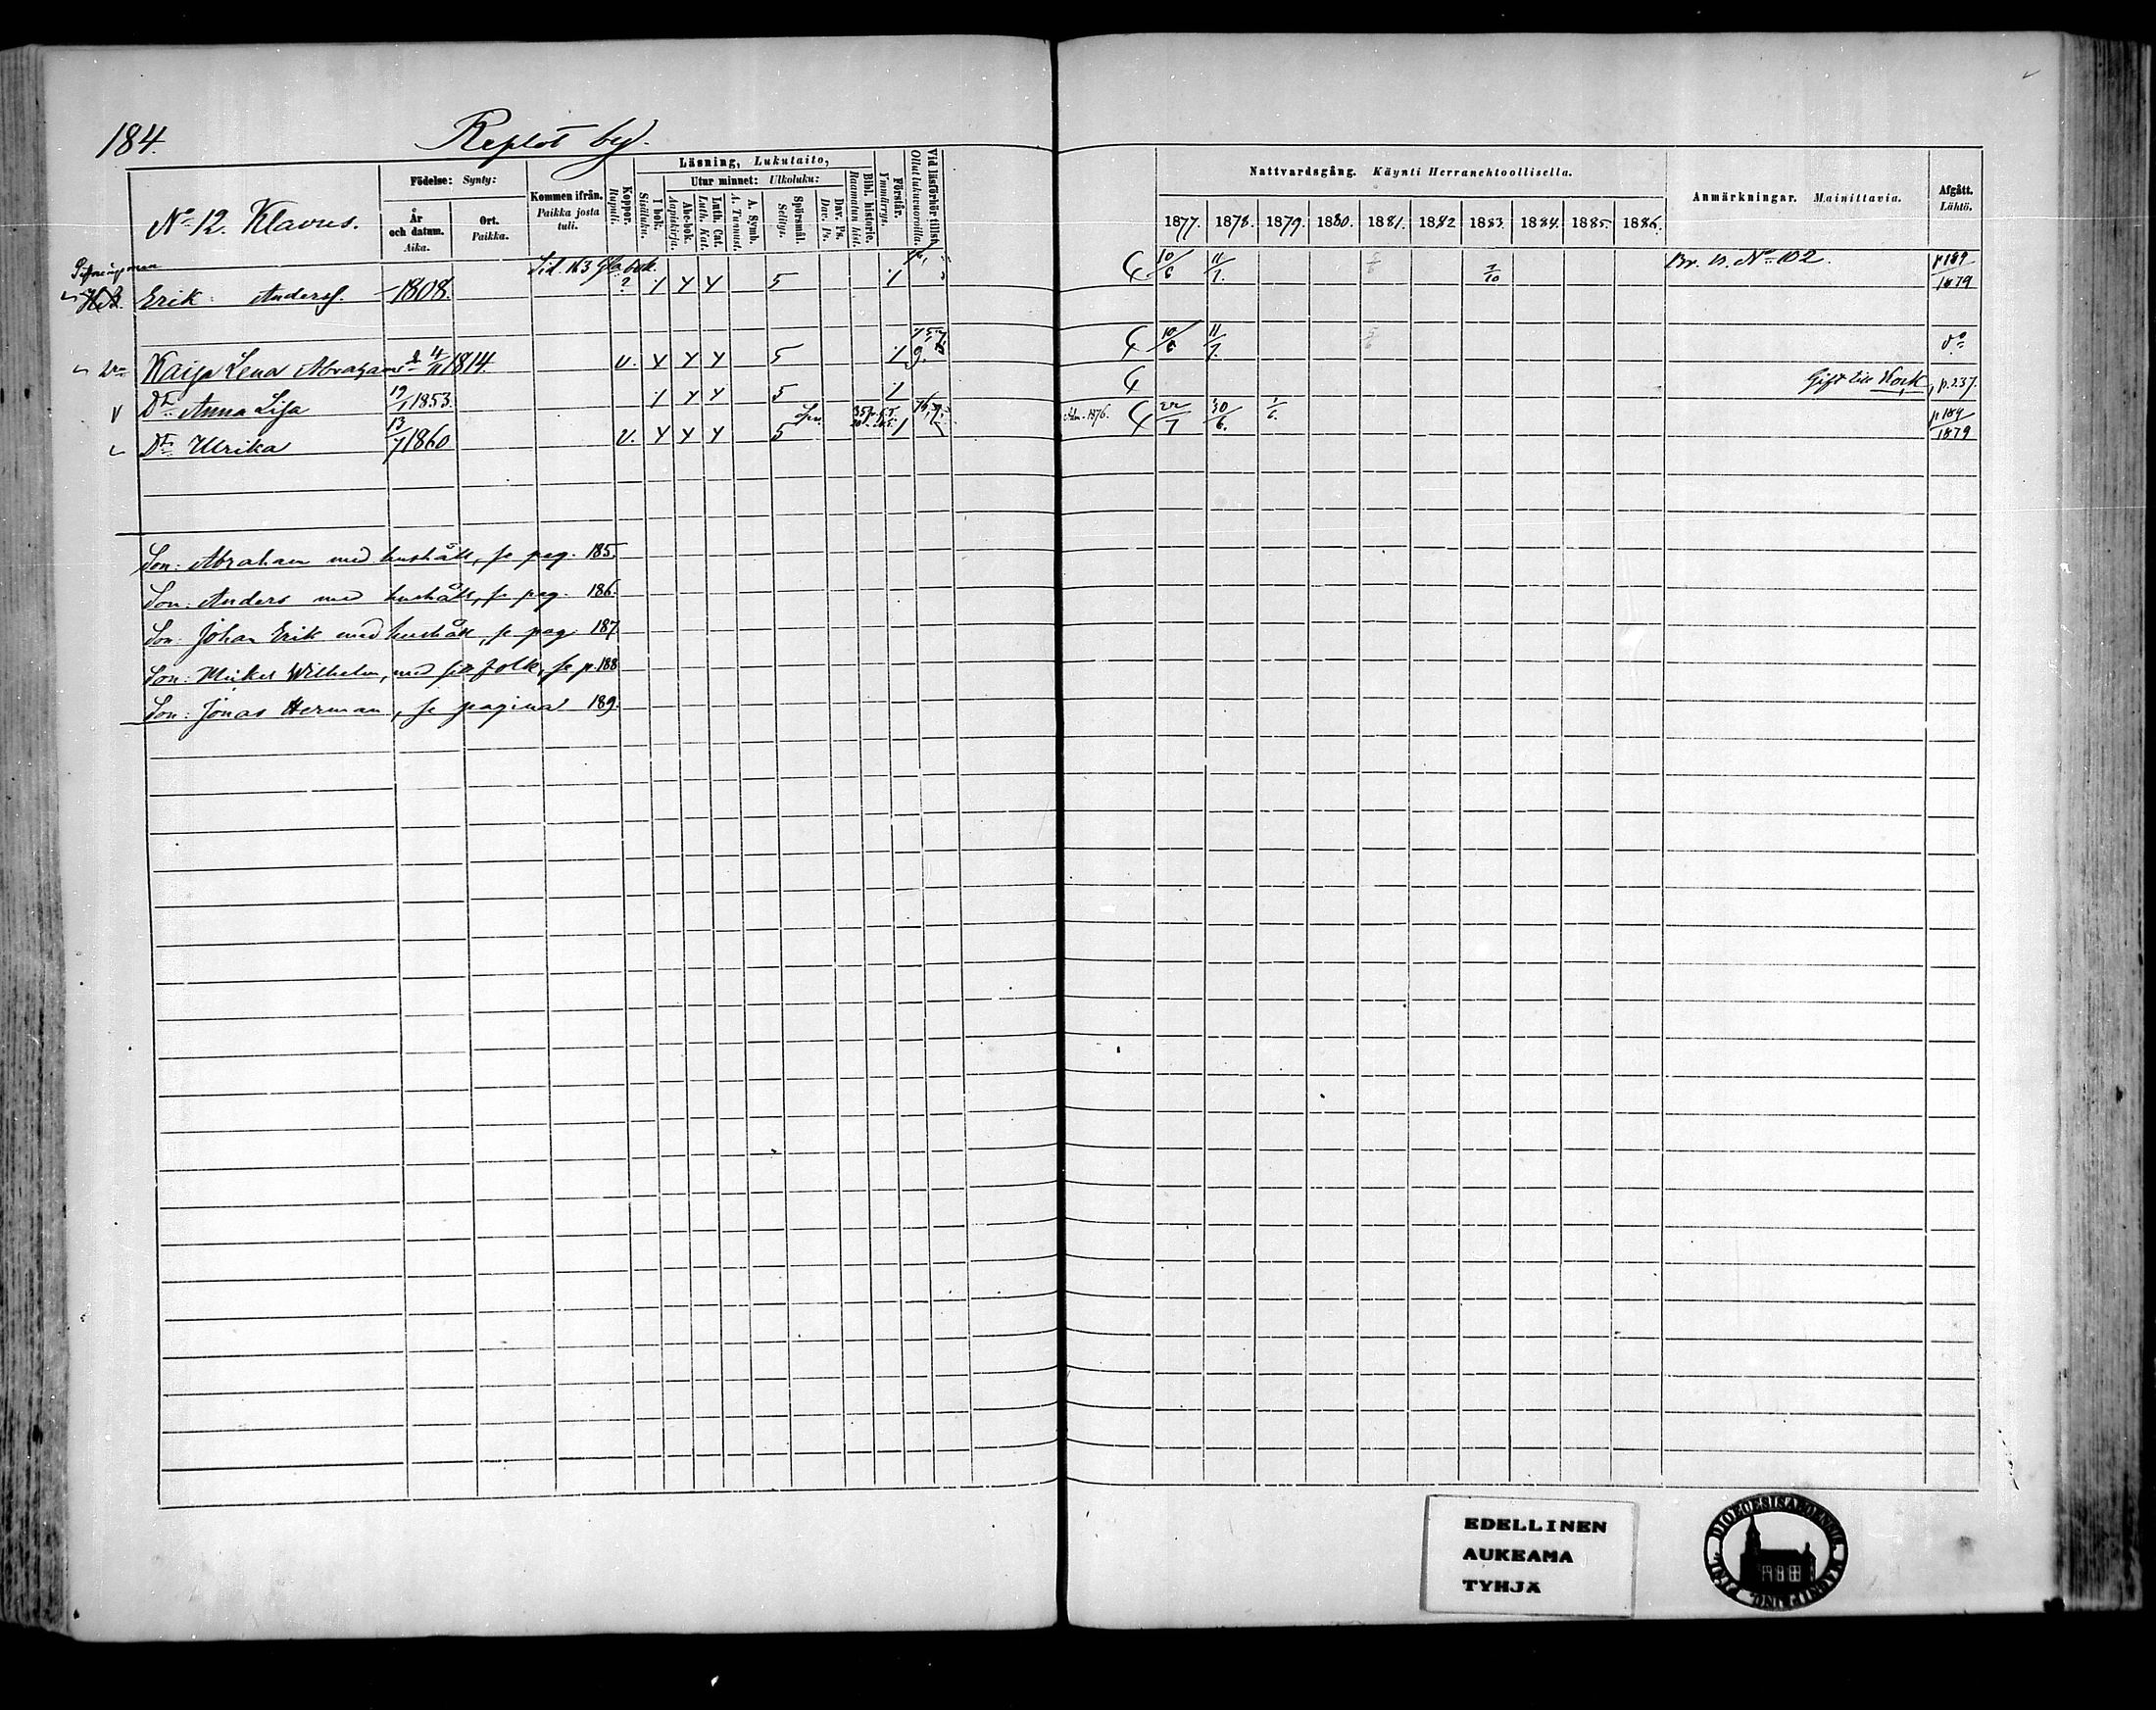 184.
Replot by.
No 12. Klavus.
Födelse: Synty:
År och datum. Aika.
Ort. Paikka.
Kommen ifrån. Paikka josta tuli.
Koppor. Rupuli.
Läsning, Lukutaito,
I bok. Sisäluku.
Utur minnet: Ulkoluku:
Abc-bok. Aapiskirja.
Luth. Cat. Luth. Kat.
A. Symb. A. Tunnust.
Spörsmål. Selitys.
Dav. Ps. Dav. Ps.
Bibl. historie. Raamatun hist.
Förstår. Ymmärrys.
Vid läsförhör tillst. Ollut lukuvuoroilla.
Nattvardsgång. Käynti Herranehtoollisella.
1877. 1878. 1879. 1880. 1881. 1882 1883. 1884. 1885. 1886.
Anmärkningar. Mainittavia.
Afgått. Lähtö.
Sid. 163 gla bok.
Erik Anderss. 1808. ? 5 10/6 11/7. 7/10 Br. B. No 102. p 189/1879
Kaija Lena Abrahamsdr 4/11 1814. v. 5 10/6 11/7. 5/6 do
Dr Anna Lisa 19/1 1853. 5 Gift till Kock, p. 237.
Dr Ulrika 13/7 1860 v. 5 Adm. 1876. 22/7 30/6. 1/6. p 189/1879
Son: Abraham med hushåll, se pag. 185.
Son: Anders med hushåll, se pag. 186.
Son: Johan Erik med hushåll, se pag. 187
Son: Mickel Wilhelm, med sitt folk, se p. 188
Son: Jonas Herman, se pagina 189.
EDELLINEN
AUKEAMA
TYHJÄ